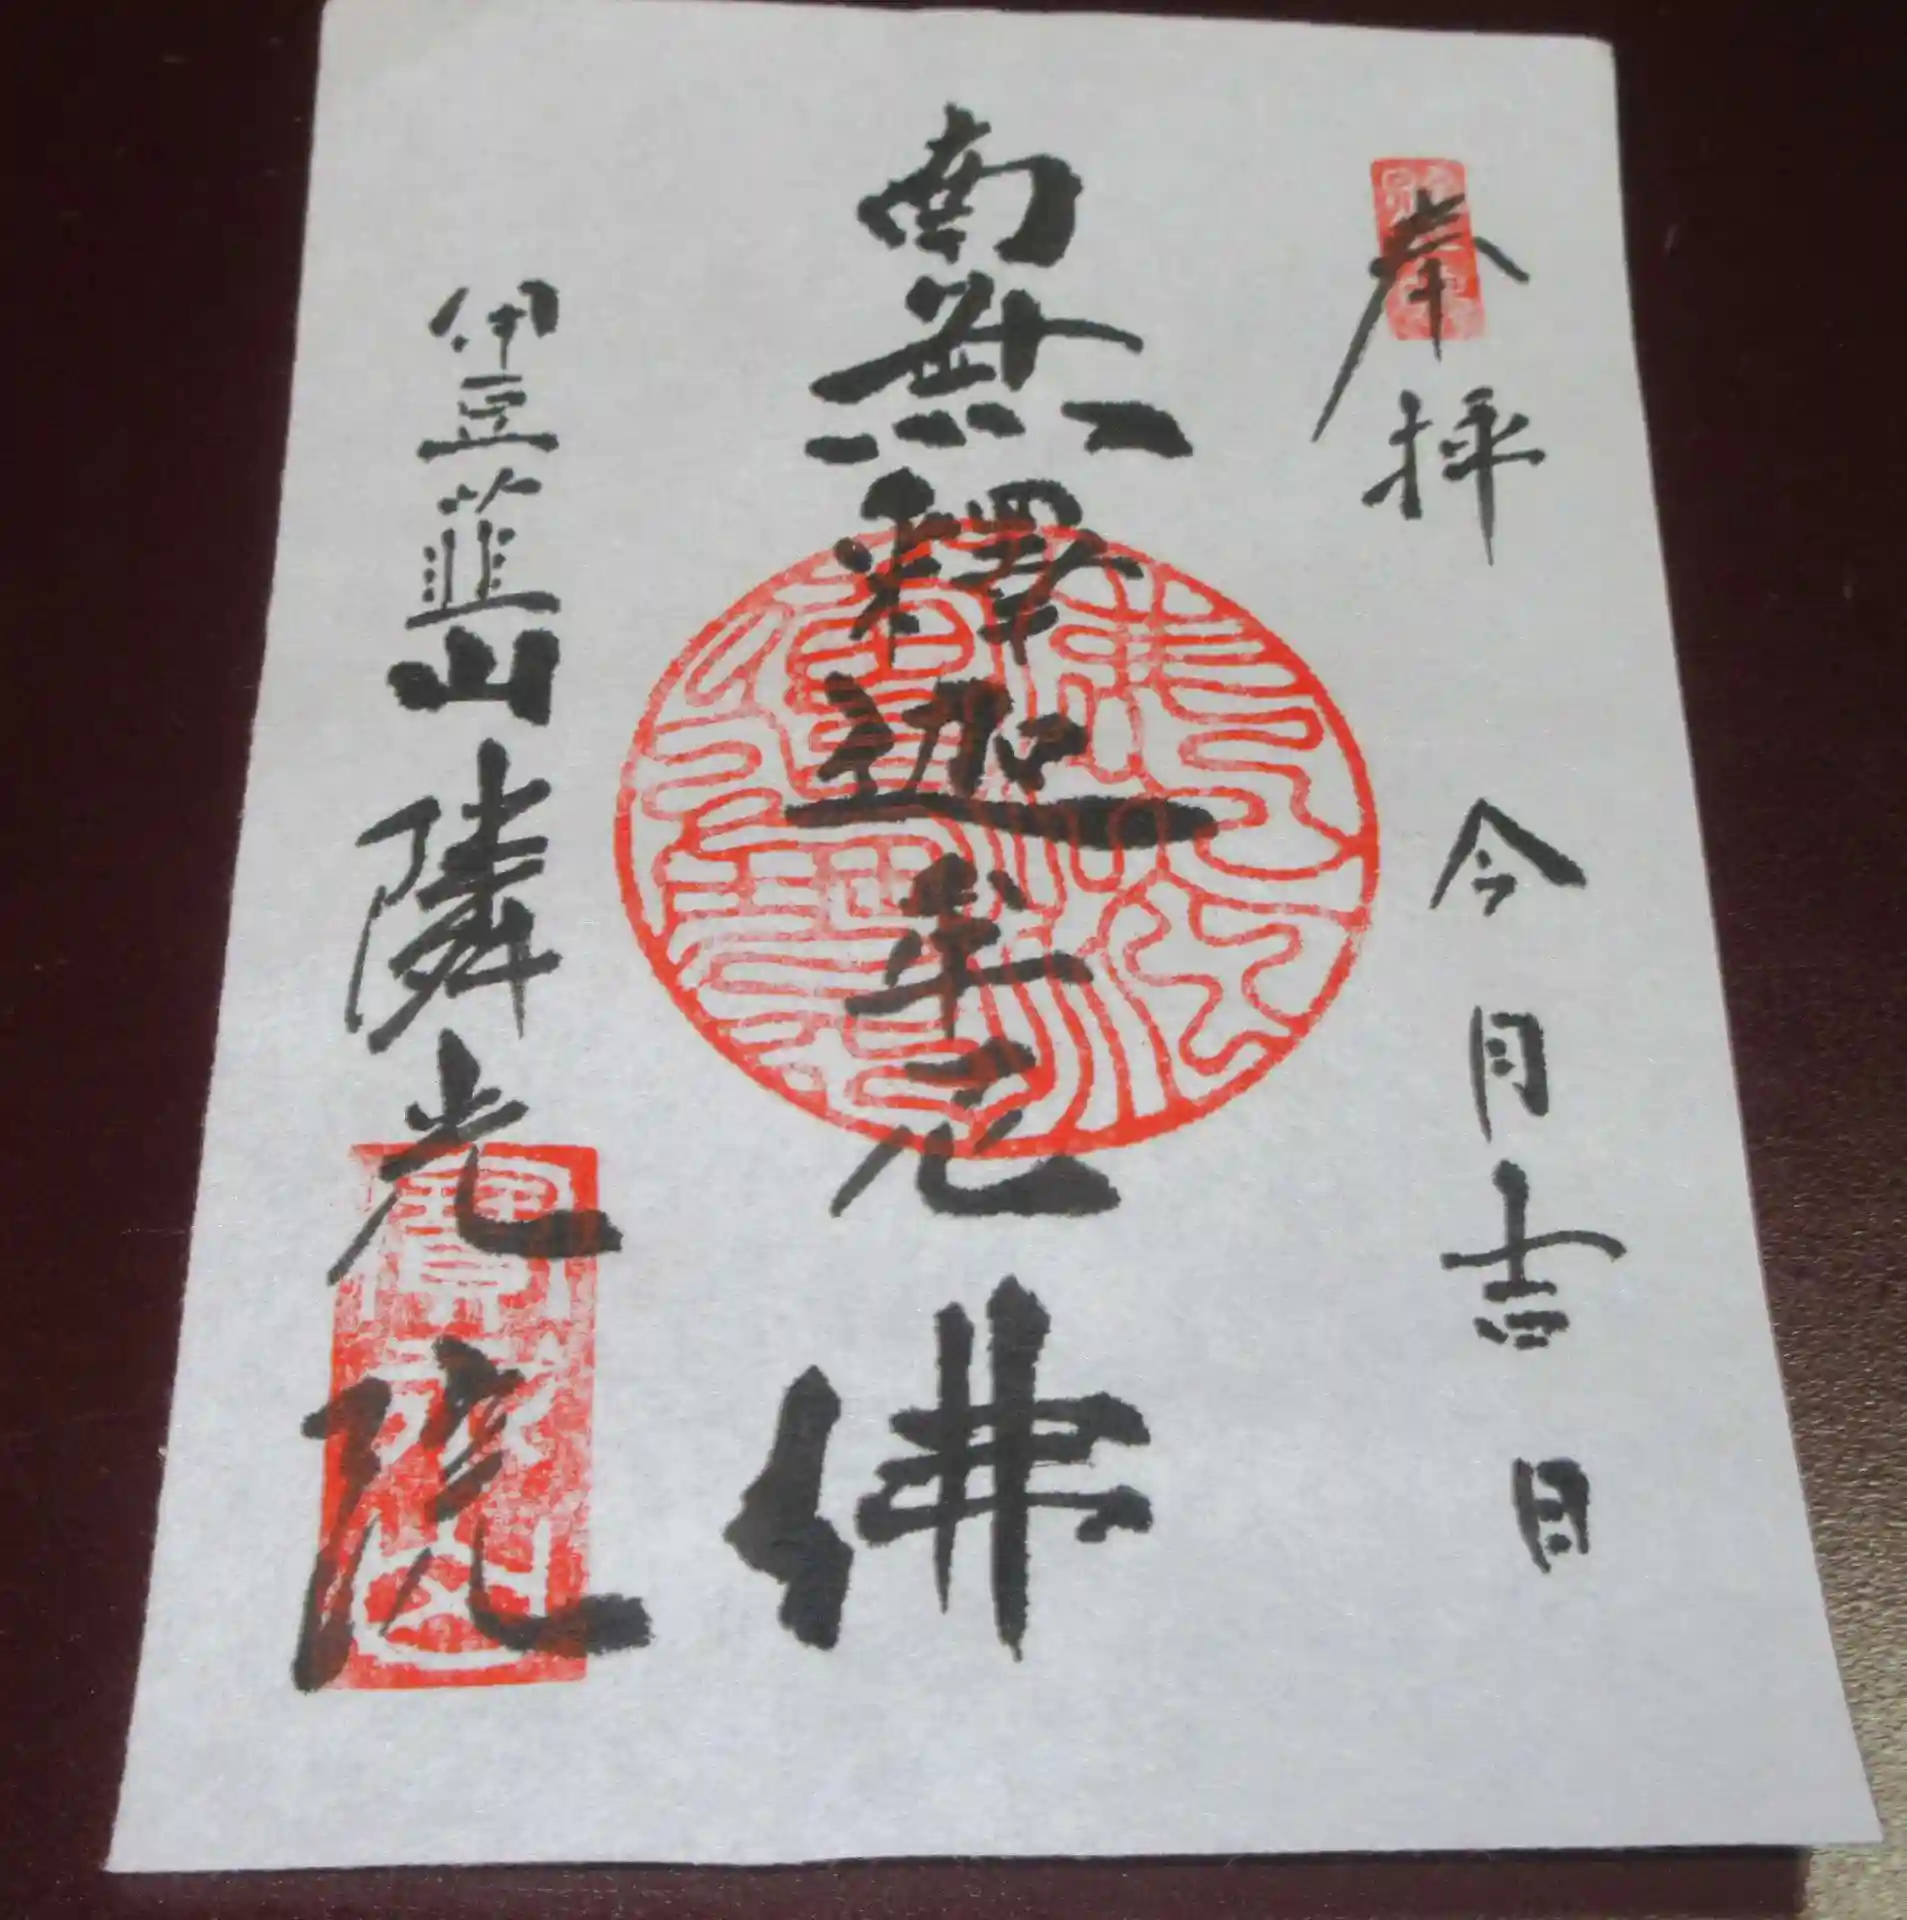 奉拝
今月吉日
南無釋迦牟尼佛
伊豆韮山隣光院